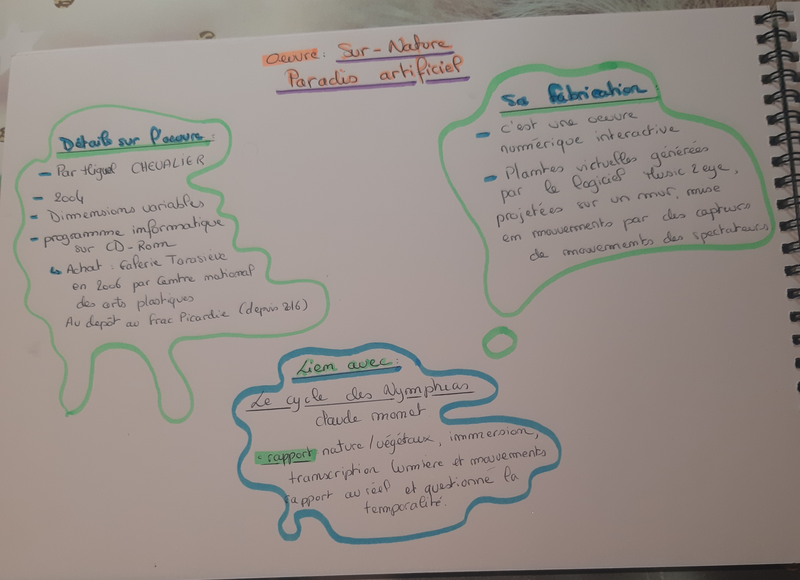 Oeuvre: Sur-Nature
Paradis artificiel
Détails sur l'oeuvre:
- Par Miguel CHEVALIER
- 2004
- Dimmensions variables
- programme informatique
sur CD-Rom
↳ Achat: Galerie Torasieve
en 2006 par Centre national
des arts plastiques
Au depôt au frac Picardie (depuis 216)
Sa fabrication
- c'est une oeuvre
numérique interactive
- Plantes virtuelles générées
par le logiciel Music 2eye,
projetées sur un mur, muse
en mouvements par des capteurs
de mouvements des spectateurs
Lien avec:
Le cycle des Nympheas
claude monet
- rapport nature/végétaux, immersion,
transcription lumiere et mouvements
rapport au réel et questionne la
temporalité.